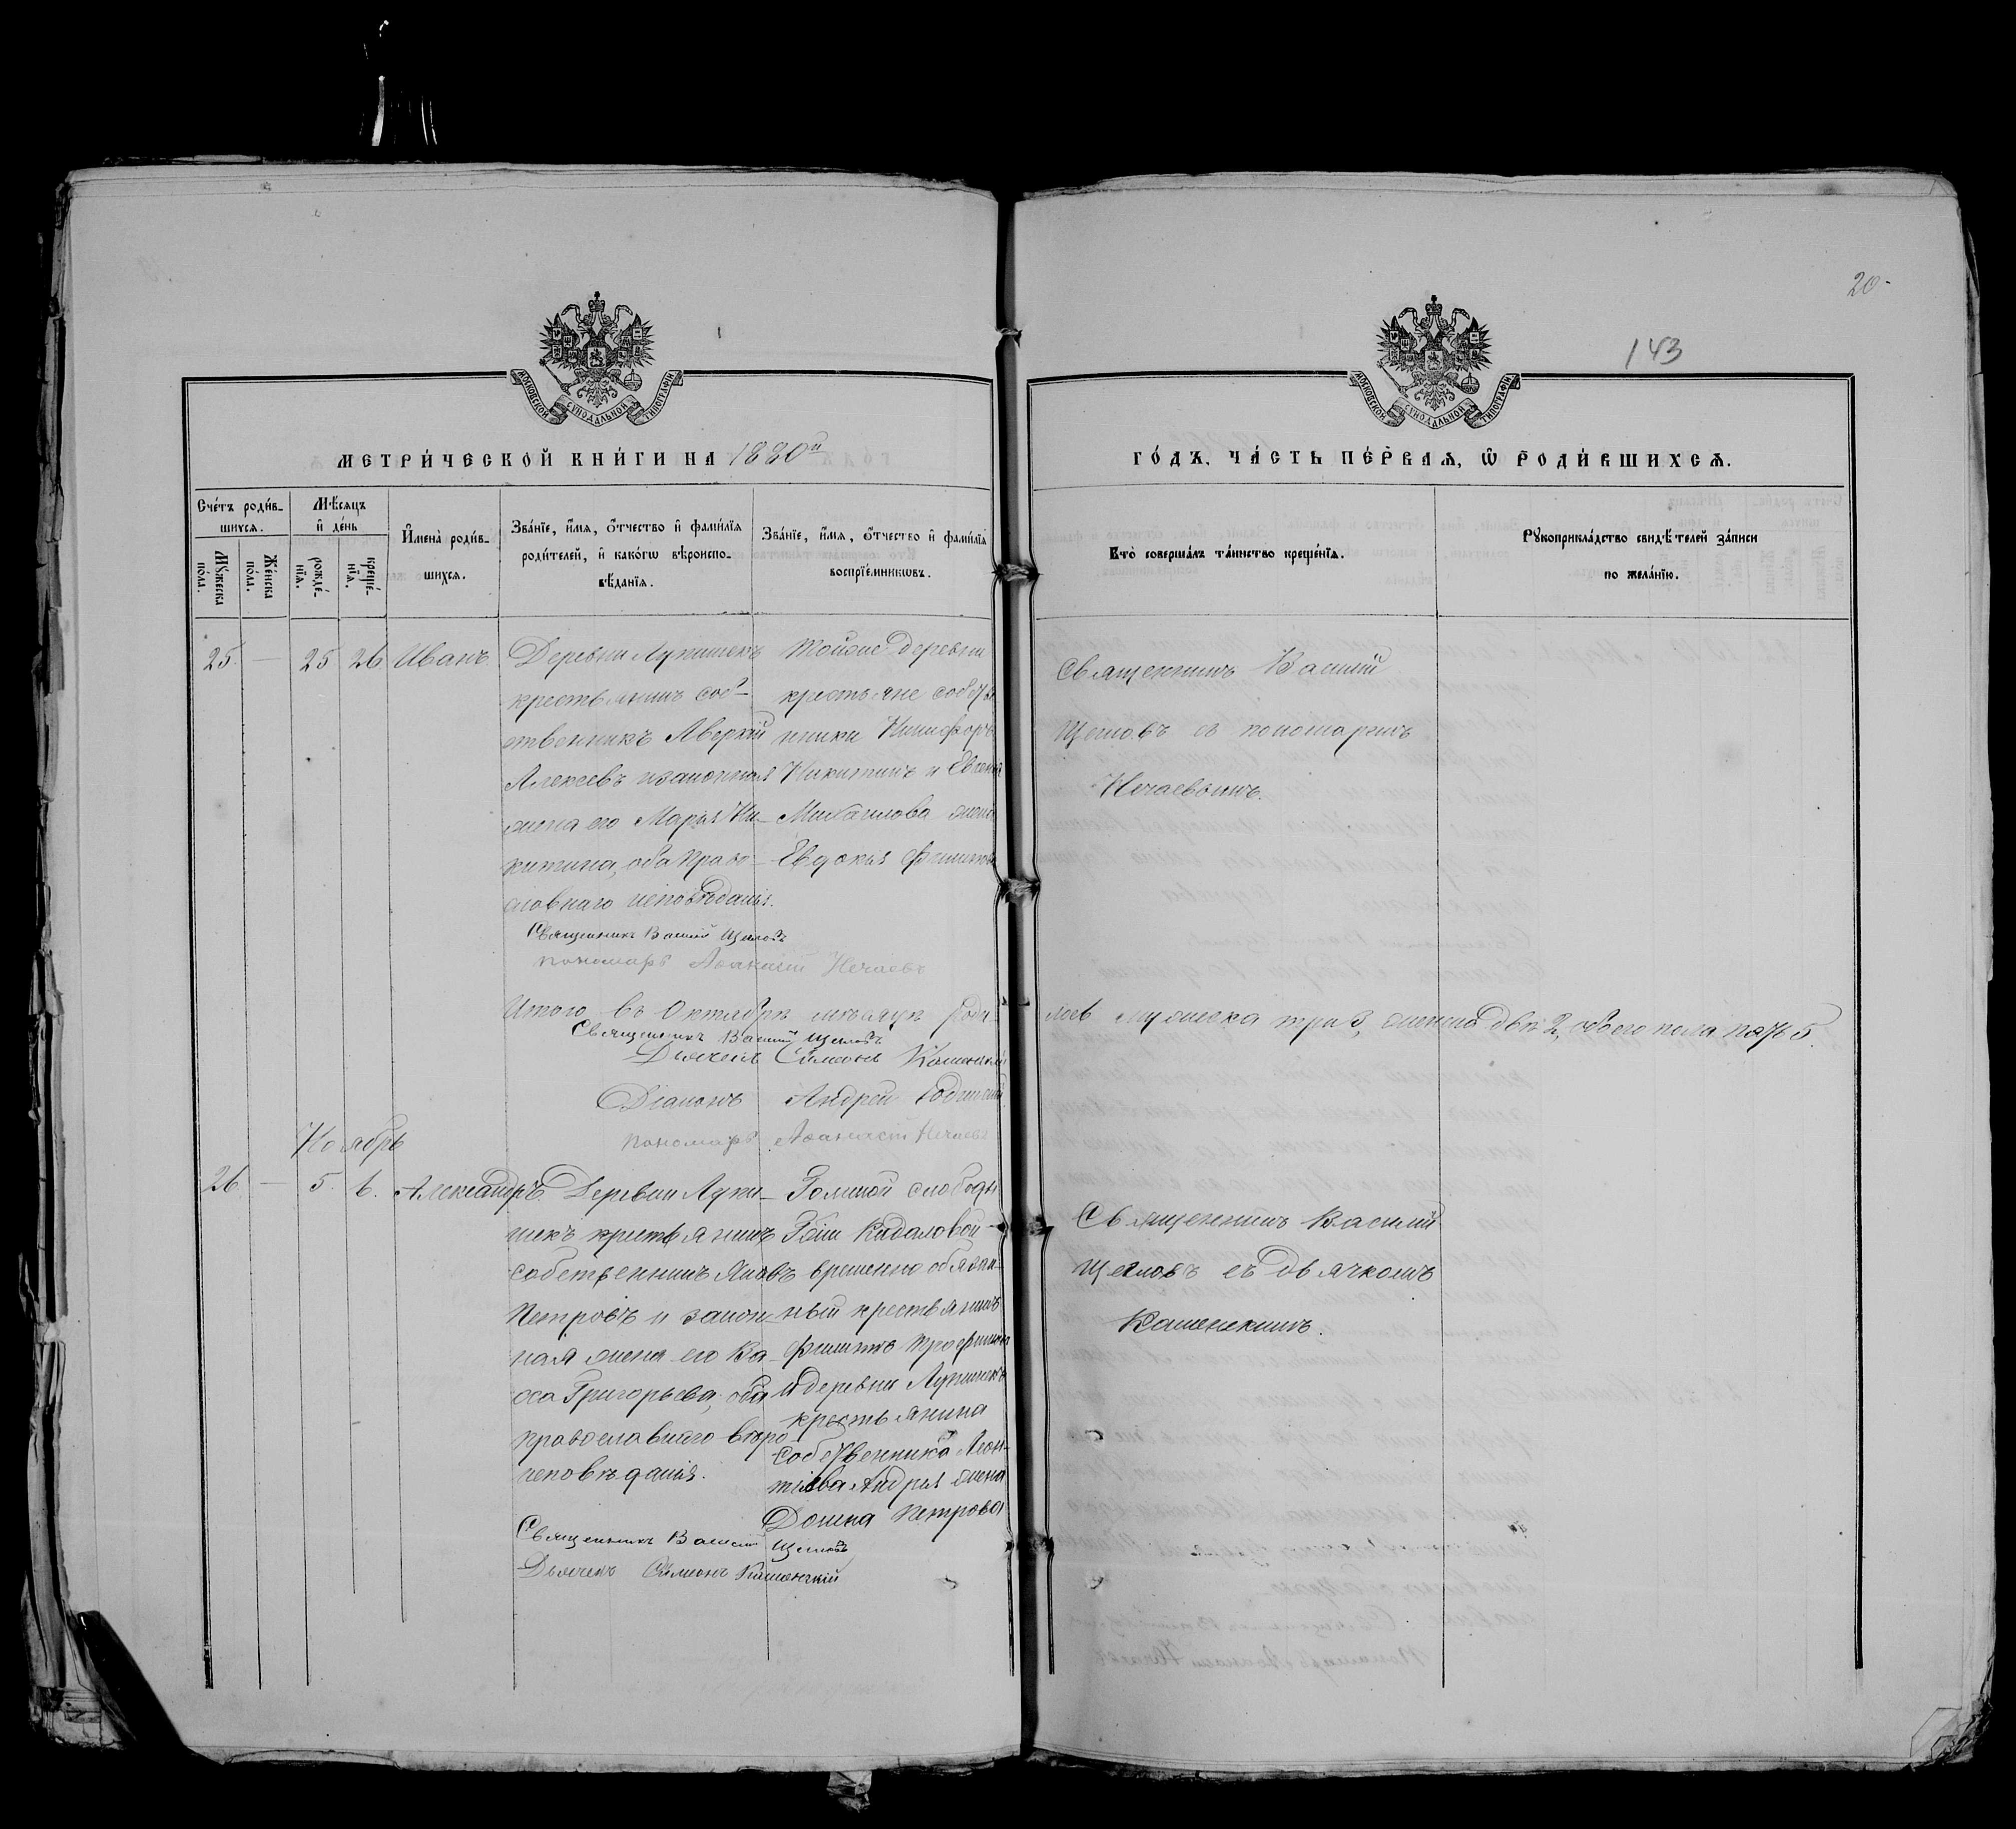 20.
143
МОСКОВСКОЙ СѴНОДАЛЬНОЙ ТИПОГРАФІИ
МОСКОВСКОЙ СѴНОДАЛЬНОЙ ТИПОГРАФІИ
МЕТРИ́ЧЕСКОЙ КНИ́ГИ НА 1880й
ГО́ДЪ, ЧА́СТЬ ПЕ́РВАЯ, Ѡ҆ РОДИ́ВШИХСЯ.
Сче́тъ роди́вшихся.
Мꙋ́жеска по́ла.
Же́нска по́ла.
Мѣ́сяцъ и҆ де́нь
рожде́нїя.
креще́нїя.
И҆мена̀ роди́вшихся.
Зва́нїе, и҆́мя, ѻ҆́тчество и҆ фами́лїя родителей, и҆ како́гѡ вѣроисповѣ́данїя.
Зва́нїе, и҆́мя, ѻ҆́тчество и҆ фами́лїя воспрїе́мникѡвъ.
Кто̀ соверша́лъ та́инство креще́нїя.
Рꙋкоприкла́дство свидѣ́телей за́писи по жела́нїю.
25. — 25 26 Иванъ.
Деревни Лупишекъ
крестьянинъ соб-
ственникъ Аверкій
Алексеевъ и законная
жена его Марья Ни-
китина, оба право-
славнаго исповѣданія.
Священникъ Василій Щегловъ
пономарь Афанасій Нечаевъ
Тойже деревни
крестьяне собств
нники Никифоръ
Никитинъ и Евгенія
Михайлова жена
Евдокія Филип
Священникъ Василій
Щегловъ съ пономаремъ
Нечаевымъ.
Итого въ Октябрѣ мѣсяцѣ роди-
лось мужеска три 3, женска двѣ 2, обоего пола пять 5.
Священникъ Василій Щегловъ
Дьячекъ Симеонъ Каменскій
Діаконъ Андрей
пономарь Афанасій Нечаевъ
Ноябрь
26 — 5. 6. Александръ.
Деревни Лупи-
шекъ крестьянинъ
собственникъ Яковъ
Петровъ и закон-
ная жена его Ва-
са Григорьева, оба
православнаго вѣро-
исповѣданія.
Священникъ Василій Щегловъ
Дьячекъ Симеонъ Каменскій
слободы
Гжи
временно обязан-
ный крестьянинъ
Филиппъ Трофимов
и деревни Лупишекъ
крестьянина
собственника Леон-
тіева Андрея жена
Домна Петрова
Священникъ Василій
Щегловъ съ дьячкомъ
Каменскимъ.